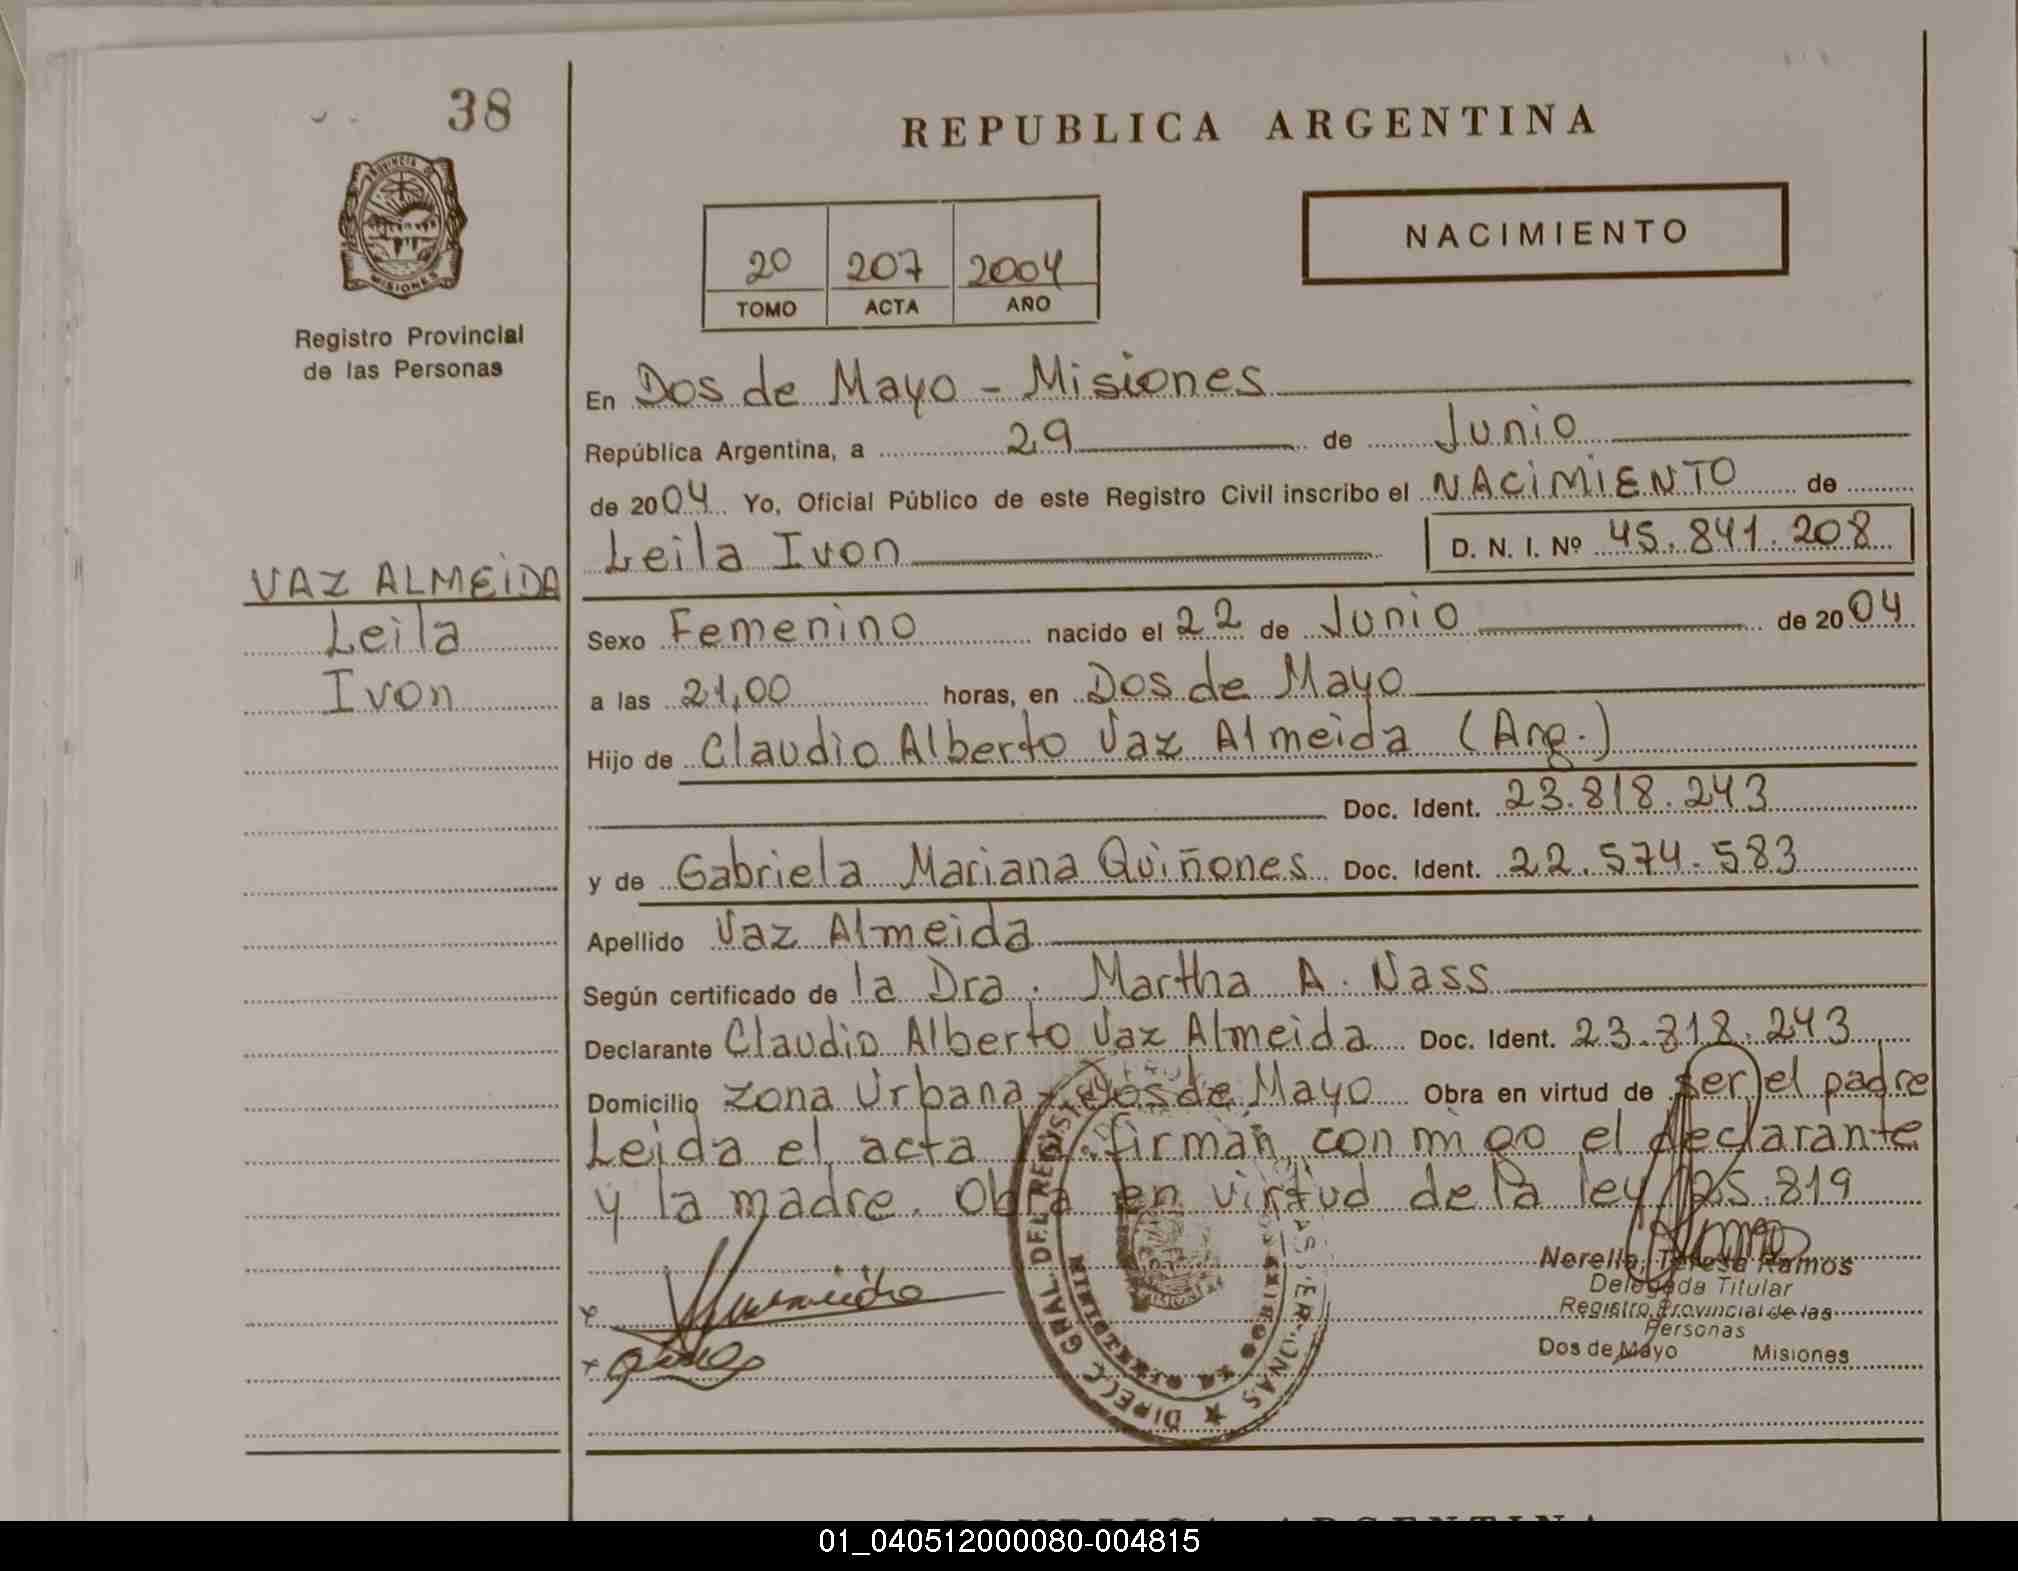 38
PROVINCIA DE
MISIONES
Registro Provincial
de las Personas
VAZ ALMEIDA
Leila
Ivon
REPUBLICA ARGENTINA
20 207 2004
TOMO ACTA AÑO
NACIMIENTO
En Dos de Mayo - Misiones
República Argentina, a 29 de Junio
de 2004 Yo, Oficial Público de este Registro Civil inscribo el NACIMIENTO de
Leila Ivon D. N. I. Nº 45.841.208
Sexo Femenino nacido el 22 de Junio de 2004
a las 21,00 horas, en Dos de Mayo
Hijo de Claudio Alberto Vaz Almeida (Arg.)
Doc. Ident. 23.818.243
y de Gabriela Mariana Quiñones Doc. Ident. 22.574.583
Apellido Vaz Almeida
Según certificado de la Dra. Martha A. Nass
Declarante Claudio Alberto Vaz Almeida Doc. Ident. 23.818.243
Domicilio Zona Urbana - Dos de Mayo Obra en virtud de ser el padre
Leida el acta la firman conmigo el declarante
y la madre. Obra en virtud de la ley 25.819
DIRECC GRAL DEL REGIST
Norella Teresa Ramos
Delegada Titular
Registro Provincial de las
Personas
Dos de Mayo Misiones
01_040512000080-004815